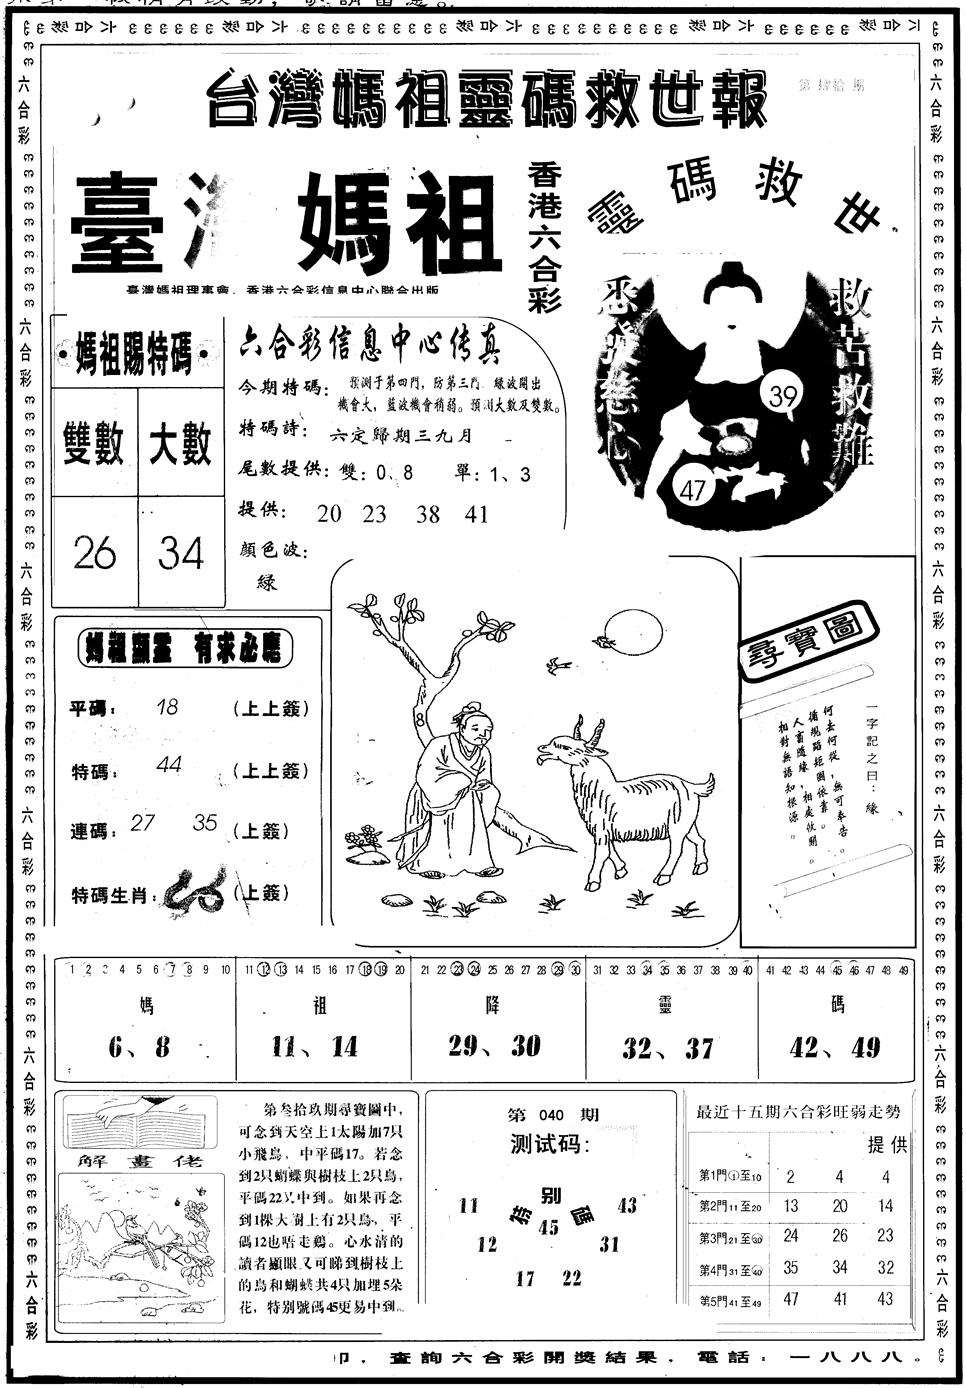 六合彩 六合彩 六合彩 六合彩
台灣媽祖靈碼救世報
第 肆拾 期
臺灣 媽祖
香港六合彩
靈碼救世
臺灣媽祖理事會．香港六合彩信息中心聯合出版
悉發慈心
救苦救難
39
47
媽祖賜特碼
雙數 大數
26 34
六合彩信息中心传真
今期特碼： 預測于第四門，防第三門 綠波開出
機會大，藍波機會稍弱。預測大數及雙數。
特碼詩： 六定歸期三九月
尾數提供：雙：0、8 單：1、3
提供： 20 23 38 41
顔色波：
緑
媽祖顯靈 有求必應
平碼： 18 （上上簽）
特碼： 44 （上上簽）
連碼： 27 35 （上簽）
特碼生肖： （上簽）
8
尋寶圖
一字記之曰：緣
何去何從，無可奉告。
循規蹈矩圈依靠。
人畜隨緣，相處攸關。
相對無語知根源。
1 2 3 4 5 6 7 8 9 10 11 12 13 14 15 16 17 18 19 20 21 22 23 24 25 26 27 28 29 30 31 32 33 34 35 36 37 38 39 40 41 42 43 44 45 46 47 48 49
媽 祖 降 靈 碼
6、8 11、14 29、30 32、37 42、49
解畫佬
第叁拾玖期尋寶圖中，
可念到天空上1太陽加7只
小飛鳥，中平碼17。若念
到2只蝴蝶與樹枝上2只鳥，
平碼22又中到。如果再念
到1棵大樹上有2只鳥，平
碼12也唔走鷄。心水清的
讀者顯眼又可睇到樹枝上
的鳥和蝴蝶共4只加埋5朵
花，特別號碼45更易中到。
第 040 期
测试码：
特别碼
11 43
45
12 31
17 22
最近十五期六合彩旺弱走勢
提供
第1門①至10 2 4 4
第2門11至20 13 20 14
第3門21至30 24 26 23
第4門31至40 35 34 32
第5門41至49 47 41 43
印．查詢六合彩開獎結果．電話：一八八八。